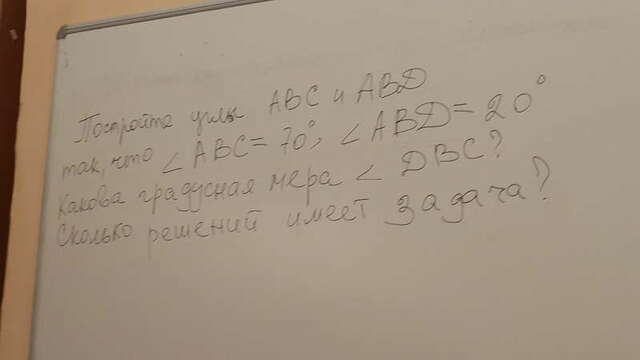 Постройте углы ABC и ABD
так, что ∠ ABC = 70°, ∠ ABD = 20°
Какова градусная мера ∠ DBC?
Сколько решений имеет задача?